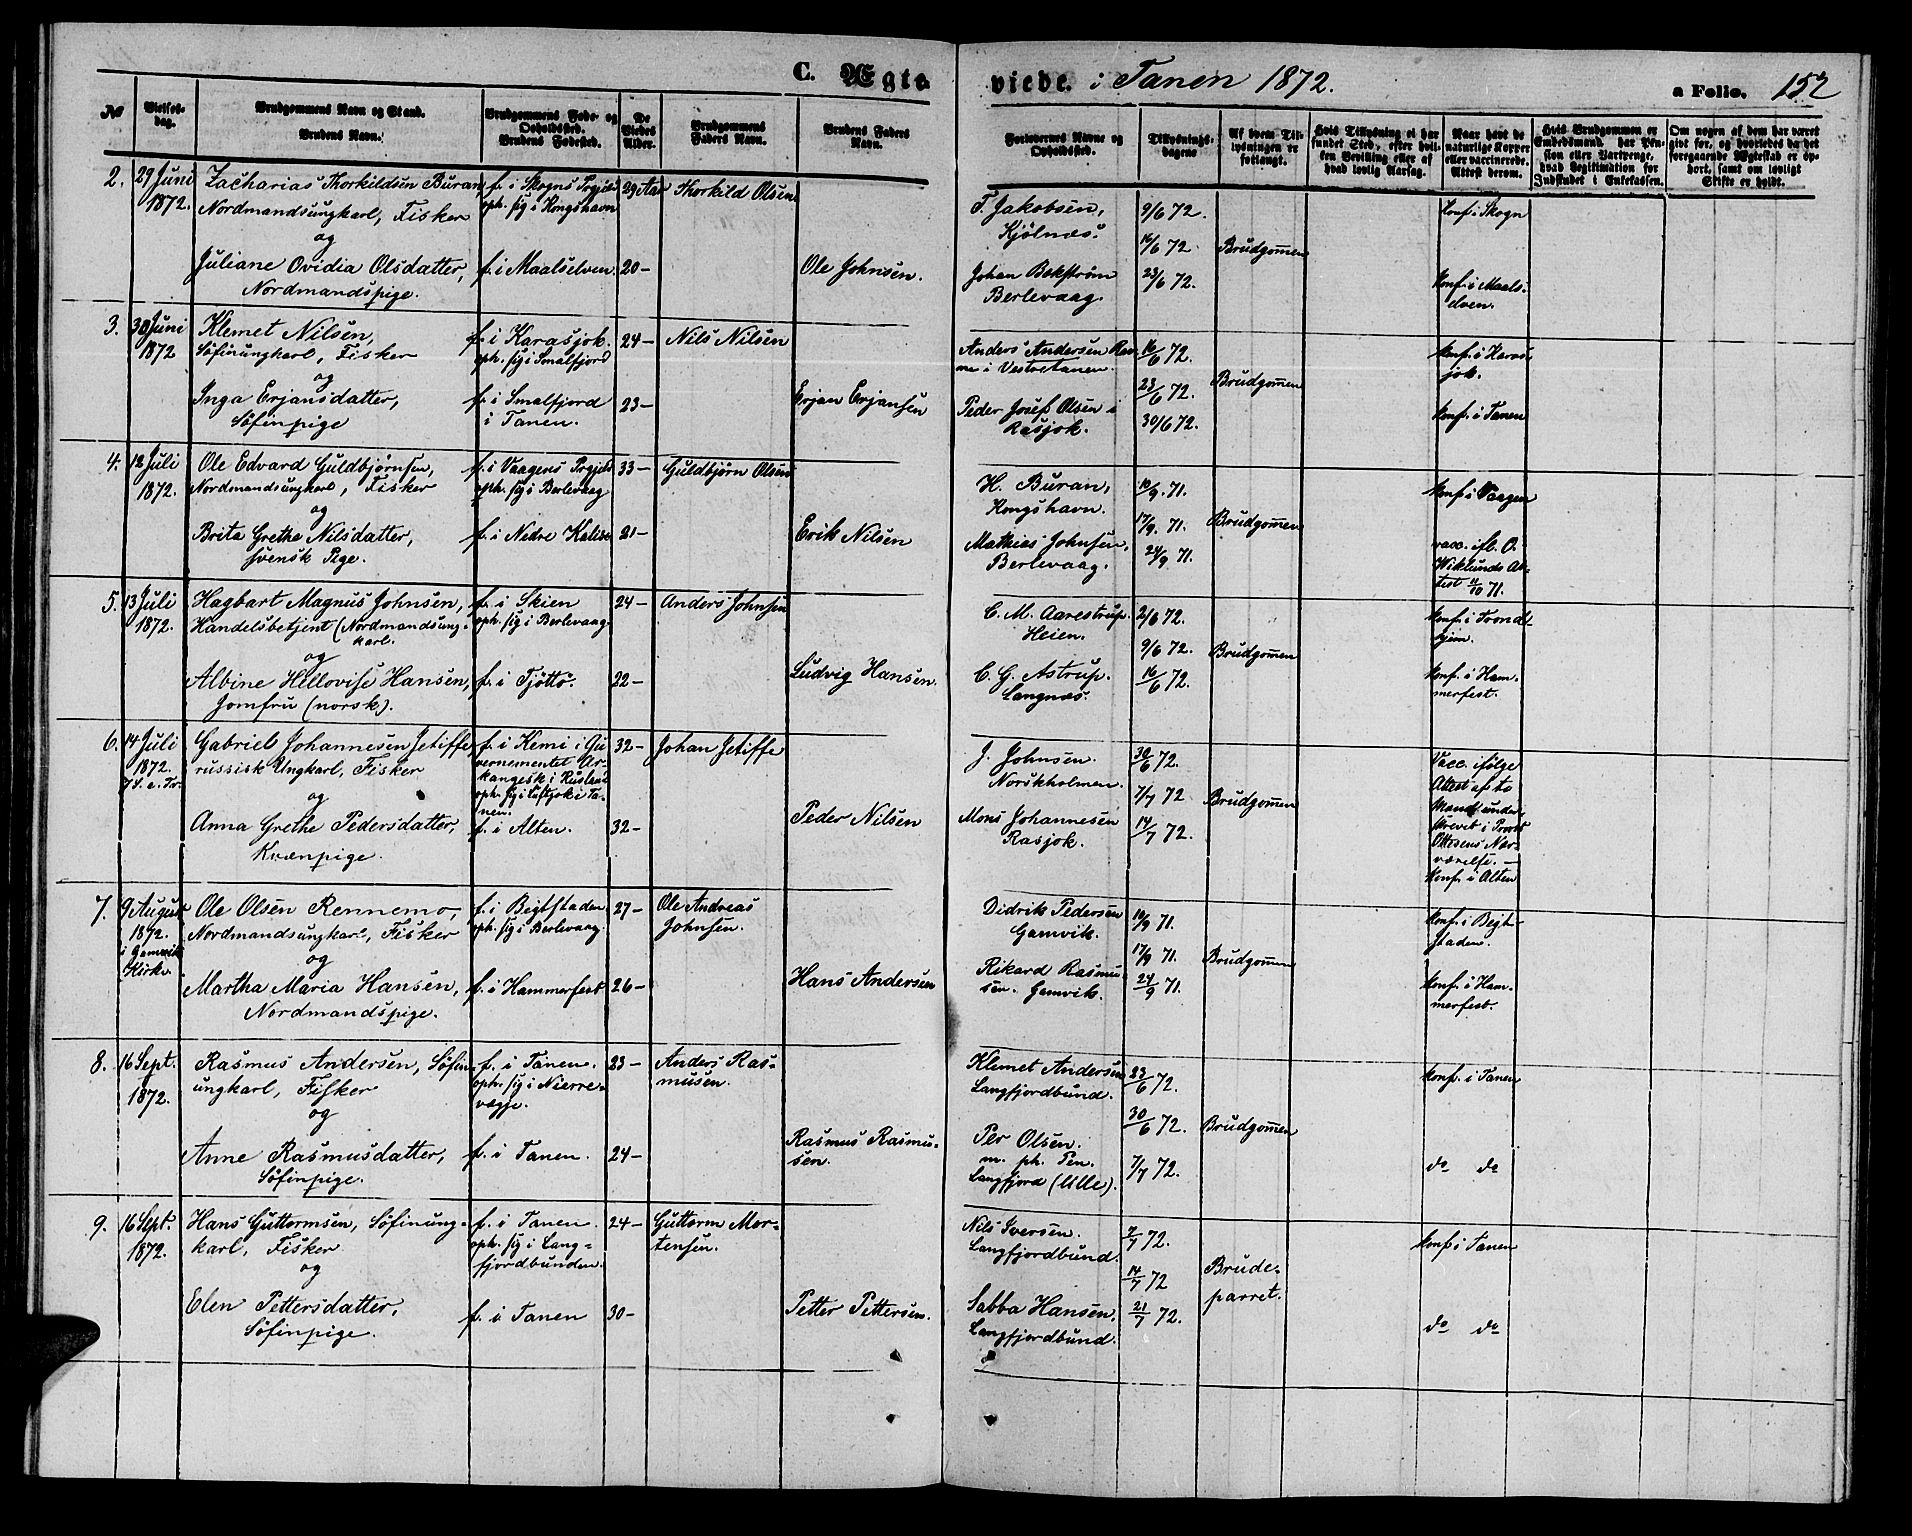 C. Ægte
viede. i Tanen 1872.
a Folio. 152
№
Vielses-
dag.
Brudgommens Navn og Stand.
Brudens Navn.
Brudgommens Føde- og
Opholdssted.
Brudens Fødested.
De
Viedes
Alder.
Brudgommens
Faders Navn.
Brudens Faders
Navn.
Forlovernes Navne og
Opholdssted.
Tillysnings-
dagene
Af hvem Til-
lysningen er
forlangt.
Hvis Tillysning ei har
fundet Sted, efter hvil-
ken Bevilling eller af
hvad lovlig Aarsag.
Naar havt de
naturlige Kopper
eller vaccinerede.
Attest derom.
Hvis Brudgommen er
Embedsmand, har Pen-
sion eller Vartpenge,
hvad Legitimation for
Indskudet i Enkekassen.
Om nogen af dem har været
givt før, og hvorledes da det
foregaaende Ægteskab er op-
hørt, samt om lovligt
Skifte er holdt.
2.
29 Juni
1872.
Zacharias Thorkildsen Buran,
Nordmandsungkarl, Fisker
og
Juliane Ovidia Olsdatter,
Nordmandspige.
f. i Skogns Prgjld
oph. sig i Kongshavn
f. i Maalselven
29 Aar
20-
Thorkild Olsen
Ole Johnsen.
F. Jakobsen,
Kjölnæs.
Johan Bekström
Berlevaag.
9/6 72.
16/6 72.
23/6 72.
Brudgomen
Konf. i Skogn
Konf. i Maals-
elven.
3.
30 Juni
1872
Klemet Nilsen,
Söfinungkarl, Fisker
og
Inga Erjansdatter,
Söfinpige
f. i Karasjok.
oph. sig i Smalfjord
f. i Smalfjord
i Tanen.
24-
23-
Nils Nilsen
Erjan Erjansen
Anders Andersen
i Vestretanen.
Peder Josef Olsen i
Rasjok.
16/6 72.
23/6 72.
30/6 72.
Brudgomen
Konf. i Karas-
jok.
Konf. i Tanen
4.
12 Juli
1872.
Ole Edvard Guldbjørnsen,
Nordmandsungkarl, Fisker
og
Brita Grethe Nilsdatter,
svensk Pige.
f. i Vaagens Prgjeld
oph. sig i Berlevaag
f. i Nedre Kalix
33-
21-
Guldbjørn Olsen
Erik Nilsen
H. Buran,
Kongshavn.
Mathias Johnsen,
Berlevaag.
10/9. 71.
17/9. 71.
24/9 71.
Brudgomen
Konf. i Vaagen
vacc. ifl. O.
Wiklunds At-
test 11/10 71.
5.
13 Juli
1872.
Hagbart Magnus Johnsen,
Handelsbetjent (Nordmandsung-
karl.
og
Albine Hellovise Hansen,
Jomfru (norsk).
f. i Skien
oph. sig i Berlevaag
f. i Tjöttö.
24-
22-
Anders Johnsen
Ludvig Hansen.
C. M. Aarestrup.
Heien.
C. G. Astrup.
Langnæs.
2/6 72.
9/6 72.
16/6 72.
Brudgomen
Konf. i Trond-
hjem.
Konf. i Ham-
merfest.
6.
14 Juli
1872.
7 S. e. Tr.
Gabriel Johannesen Jetiffe,
russisk Ungkarl, Fisker
og
Anna Grethe Pedersdatter,
Kvænpige.
f. i Kemi i Gu-
vernementet Ar-
kangesk i Rusland
oph. sig i Luftjok i Ta-
nen.
f. i Alten.
32-
32-
Johan Jetiffe
Peder Nilsen
J. Johnsen.
Norskholmen.
Mons Johannesen
Rasjok.
30/6 72.
7/7 72
14/7 72.
Brudgomen
Vacc. ifølge
Attest af to
Mænd under-
skrevet i Provst
Ottesens Nær-
værelse. -
Konf. i Alten
7.
9 August
1872.
i Gamvik
Kirke
Ole Olsen Rennemo,
Nordmandsungkarl, Fisker
og
Martha Maria Hansen,
Nordmandspige.
f. i Begtstaden
oph. sig i Berlevaag.
f. i Hammerfest
27-
26-
Ole Andreas
Johnsen.
Hans Andersen
Didrik Pedersen
Gamvik.
Rikard Rasmu-
sen. Gamvik.
10/9 71.
17/9 71.
24/9 71.
Brudgomen
Konf. i Begt-
staden.
Konf. i Ham-
merfest.
8.
16 Sept.
1872.
Rasmus Andersen, Söfin-
ungkarl, Fisker
og
Anne Rasmusdatter,
Söfinpige.
f. i Tanen.
oph. sig i Nierre-
vægje.
f. i Tanen.
23-
24-
Anders Ras-
musen.
Rasmus Rasmu-
sen.
Klemet Andersen
Langfjordbund.
Per Olsen.
m. ph. Pen.
Langfjord (Ulle).
23/6 72.
30/6 72.
7/7 72.
Brudgomen
Konf. i Tanen
do do
9.
16 Sept.
1872.
Hans Guttormsen, Söfinung-
karl, Fisker
og
Elen Pettersdatter,
Söfinpige.
f. i Tanen.
oph. sig i Lang-
fjordbunden.
f. i Tanen
24-
30-
Guttorm Mor-
tensen.
Petter Pettersen.
Nils Iversen.
Langfjordbund.
Sabba Hansen,
Langfjordbund.
7/7 72.
14/7 72
21/7 72.
Brude-
parret.
Konf. i Tanen
do do